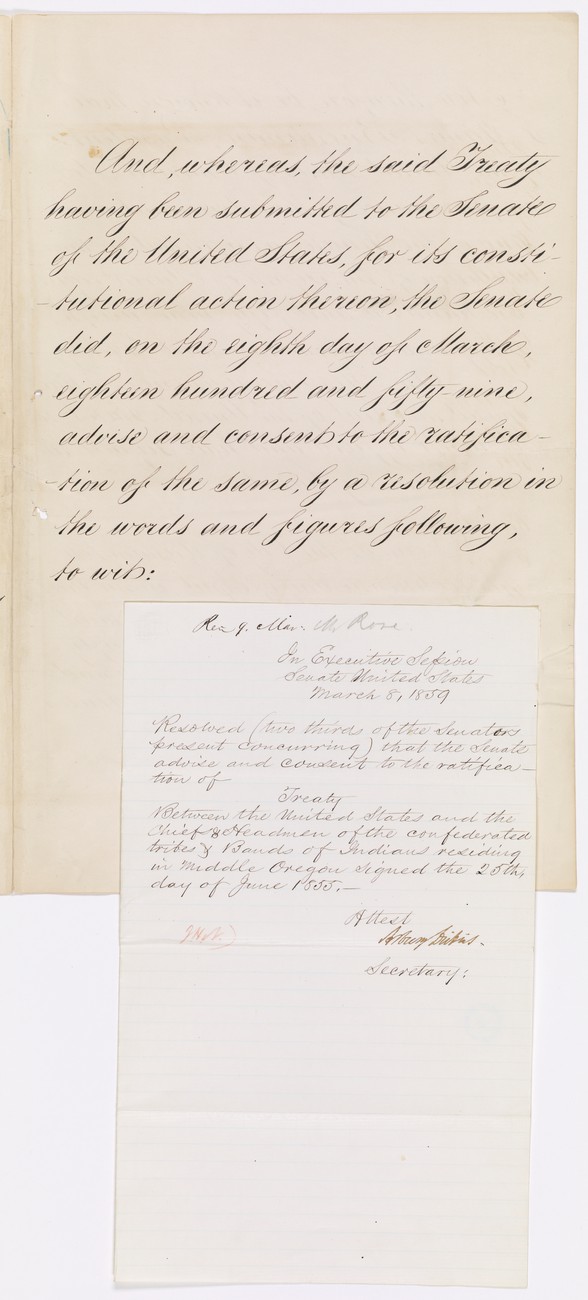 And, whereas, the said Treaty
having been submitted to the Senate
of the United States, for its consti-
-tutional action thereon, the Senate
did, on the eighth day of March,
eighteen hundred and fifty-nine,
advise and consent to the ratifica-
-tion of the same, by a resolution in
the words and figures following,
to wit:
Rec 9. Mar. Mr Rose
In Executive Session
Senate United States
March 8, 1859
Resolved (two thirds of the Senators
present concurring) that the Senate
advise and consent to the ratifica-
tion of
Treaty
Between the United States and the
Chiefs & Headmen of the confederated
tribes & Bands of Indians residing
in Middle Oregon signed the 25th,
day of June 1855.—
Attest
Asbury Dickins.
Secretary: